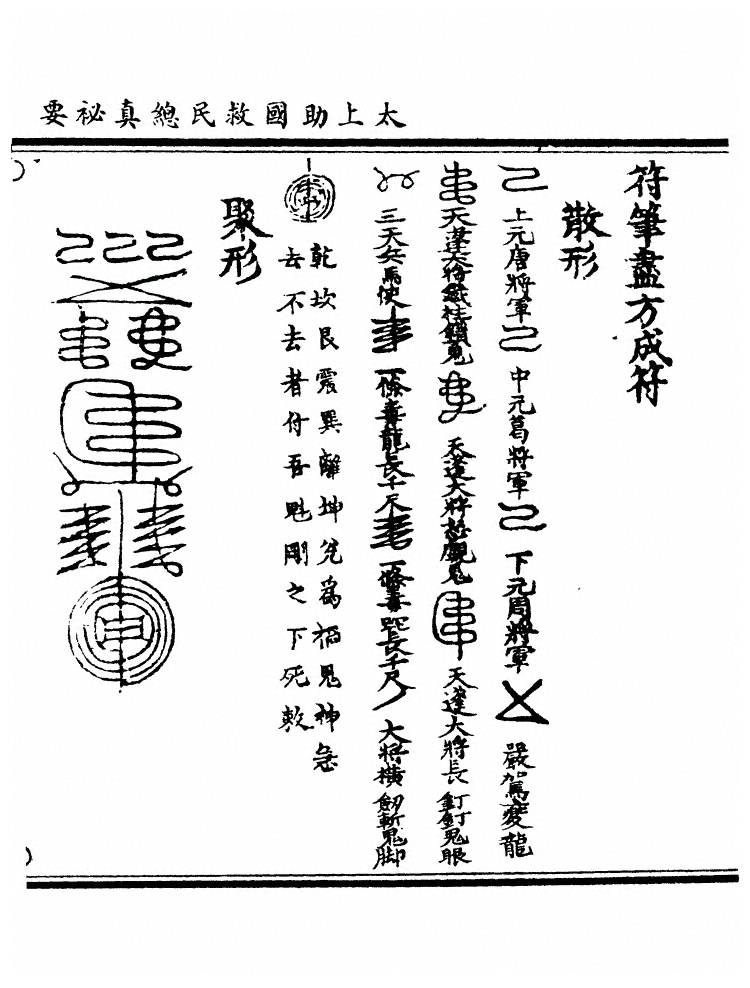 太上助國救民總真祕要
符筆盡方成符
散形
上元唐將軍 中元葛將軍 下元周將軍 嚴駕夔龍
天蓬大將鐵柱鎖鬼 天蓬大將 鬼 天蓬大將長釘釘鬼眼
三天女馬使 一條毒龍長千尺 一條毒蛇長千尺 大將橫劒斬鬼脚
乾坎艮震巽離坤兌為禍鬼神急
去不去者付吾魁剛之下死敕
聚形